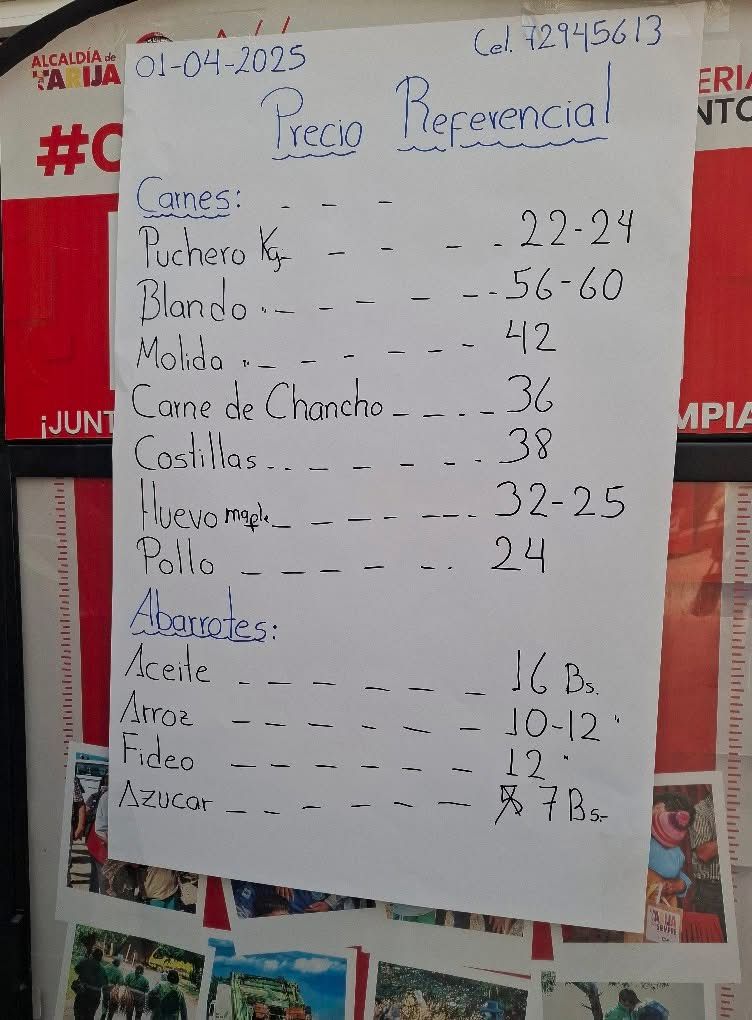 ALCALDÍA de
TARIJA
01-04-2025
Cel. 72945613
#C
ERIA
NTO
Precio Referencial
Carnes: - - -
Puchero Kg- - - - - 22-24
Blando "- - - - - - 56-60
Molida "- - - - - - 42
Carne de Chancho - - - - 36
Costillas - - - - - - - 38
Huevo maple - - - - - - - 32-25
Pollo - - - - - - - 24
¡JUNT
MPIA
Abarrotes:
Aceite - - - - - - 16 Bs.
Arroz - - - - - - 10-12 "
Fideo - - - - - - 12 "
Azucar - - - - - - 7 Bs-